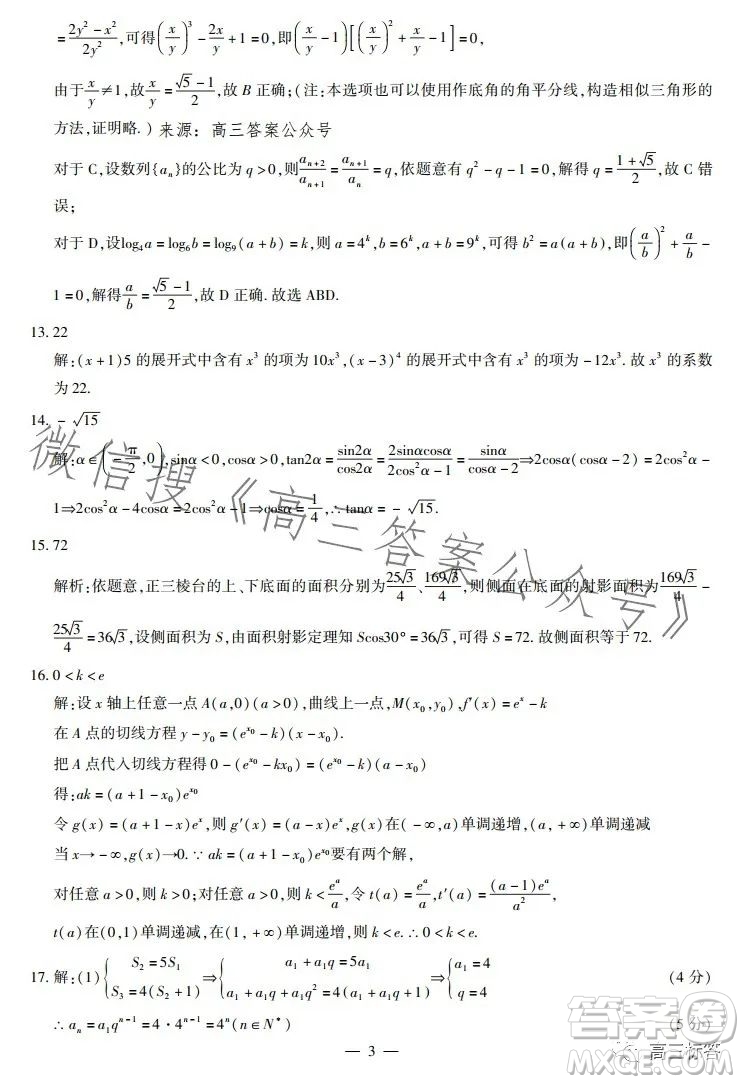 =\frac{2y²-x²}{2y²},可得(\frac{x}{y})³-\frac{2x}{y}+1=0,即(\frac{x}{y}-1)[(\frac{x}{y})²+\frac{x}{y}-1]=0,
由于\frac{x}{y}≠1,故\frac{x}{y}=\frac{√5-1}{2},故 B 正确;(注:本选项也可以使用作底角的角平分线,构造相似三角形的
方法,证明略.)来源:高三答案公众号
对于 C,设数列{aₙ}的公比为 q>0,则\frac{aₙ₊₂}{aₙ₊₁}=\frac{aₙ₊₁}{aₙ}=q,依题意有 q²-q-1=0,解得 q=\frac{1+√5}{2},故 C 错
误;
对于 D,设log₄a=log₆b=log₉(a+b)=k,则 a=4ᵏ,b=6ᵏ,a+b=9ᵏ,可得 b²=a(a+b),即(\frac{a}{b})²+\frac{a}{b}-
1=0,解得\frac{a}{b}=\frac{√5-1}{2},故 D 正确.故选 ABD.
13.22
解:(x+1)5 的展开式中含有 x³ 的项为 10x³,(x-3)⁴ 的展开式中含有 x³ 的项为-12x³.故 x³ 的系数
为 22.
14.-√15
解:α∈(-\frac{π}{2},0),sinα<0,cosα>0,tan2α=\frac{sin2α}{cos2α}=\frac{2sinαcosα}{2cos²α-1}=\frac{sinα}{cosα-2}⇒2cosα(cosα-2)=2cos²α-
1⇒2cos²α-4cosα=2cos²α-1⇒cosα=\frac{1}{4},∴tanα=-√15.
15.72
解析:依题意,正三棱台的上、下底面的面积分别为\frac{25√3}{4}、\frac{169√3}{4},则侧面在底面的射影面积为\frac{169√3}{4}-
\frac{25√3}{4}=36√3,设侧面积为 S,由面积射影定理知 Scos30°=36√3,可得 S=72.故侧面积等于 72.
16.0<k<e
解:设 x 轴上任意一点 A(a,0)(a>0),曲线上一点,M(x₀,y₀),f′(x)=eˣ-k
在 A 点的切线方程 y-y₀=(e^{x₀}-k)(x-x₀).
把 A 点代入切线方程得 0-(e^{x₀}-kx₀)=(e^{x₀}-k)(a-x₀)
得:ak=(a+1-x₀)e^{x₀}
令 g(x)=(a+1-x)eˣ,则 g′(x)=(a-x)eˣ,g(x)在(-∞,a)单调递增,(a,+∞)单调递减
当 x→-∞,g(x)→0.∵ak=(a+1-x₀)e^{x₀}要有两个解,
对任意 a>0,则 k>0;对任意 a>0,则 k<\frac{eᵃ}{a},令 t(a)=\frac{eᵃ}{a},t′(a)=\frac{(a-1)eᵃ}{a²},
t(a)在(0,1)单调递减,在(1,+∞)单调递增,则 k<e.∴0<k<e.
17.解:(1){S₂=5S₁ S₃=4(S₂+1)⇒{a₁+a₁q=5a₁ a₁+a₁q+a₁q²=4(a₁+a₁q+1)⇒{a₁=4 q=4 (4 分)
∴aₙ=a₁qⁿ⁻¹=4·4ⁿ⁻¹=4ⁿ(n∈N*) (5 分)
— 3 —
微信搜《高三答案公众号》
答案圈
高三标答
MXQE.COM